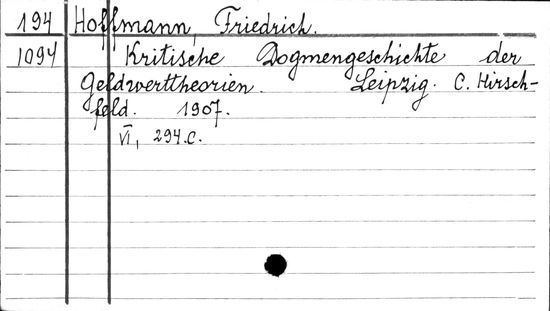 194 Hoffmann, Friedrich.
1094 Kritische Dogmengeschichte der
Geldwerttheorien. Leipzig. C. Hirsch-
feld. 1907.
VI, 294.c.